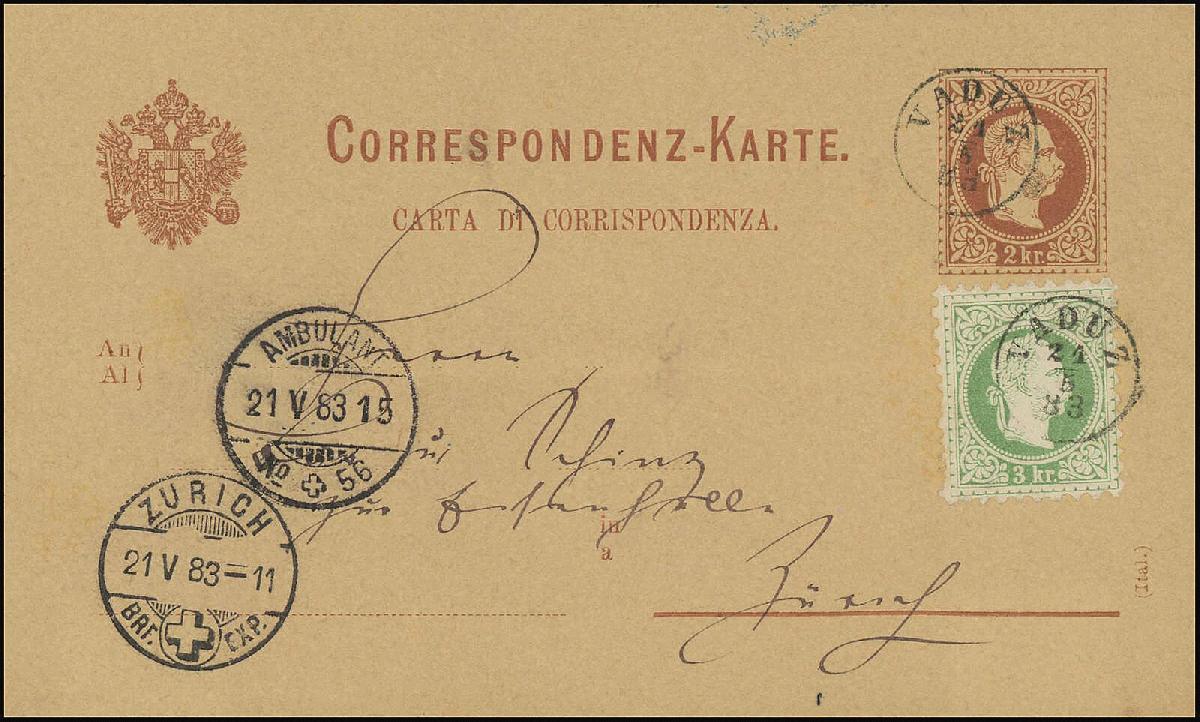 CORRESPONDENZ-KARTE.
CARTA DI CORRISPONDENZA.
VADUZ
21
5
83
2 kr.
VADUZ
21
5
83
3 kr.
An
Al
AMBULANT
21 V 83 15
No 56
Schinz
zur Eisenhalle
in
a
Zürich
ZÜRICH
21 V 83 - 11
BRF. EXP.
(Ital.)